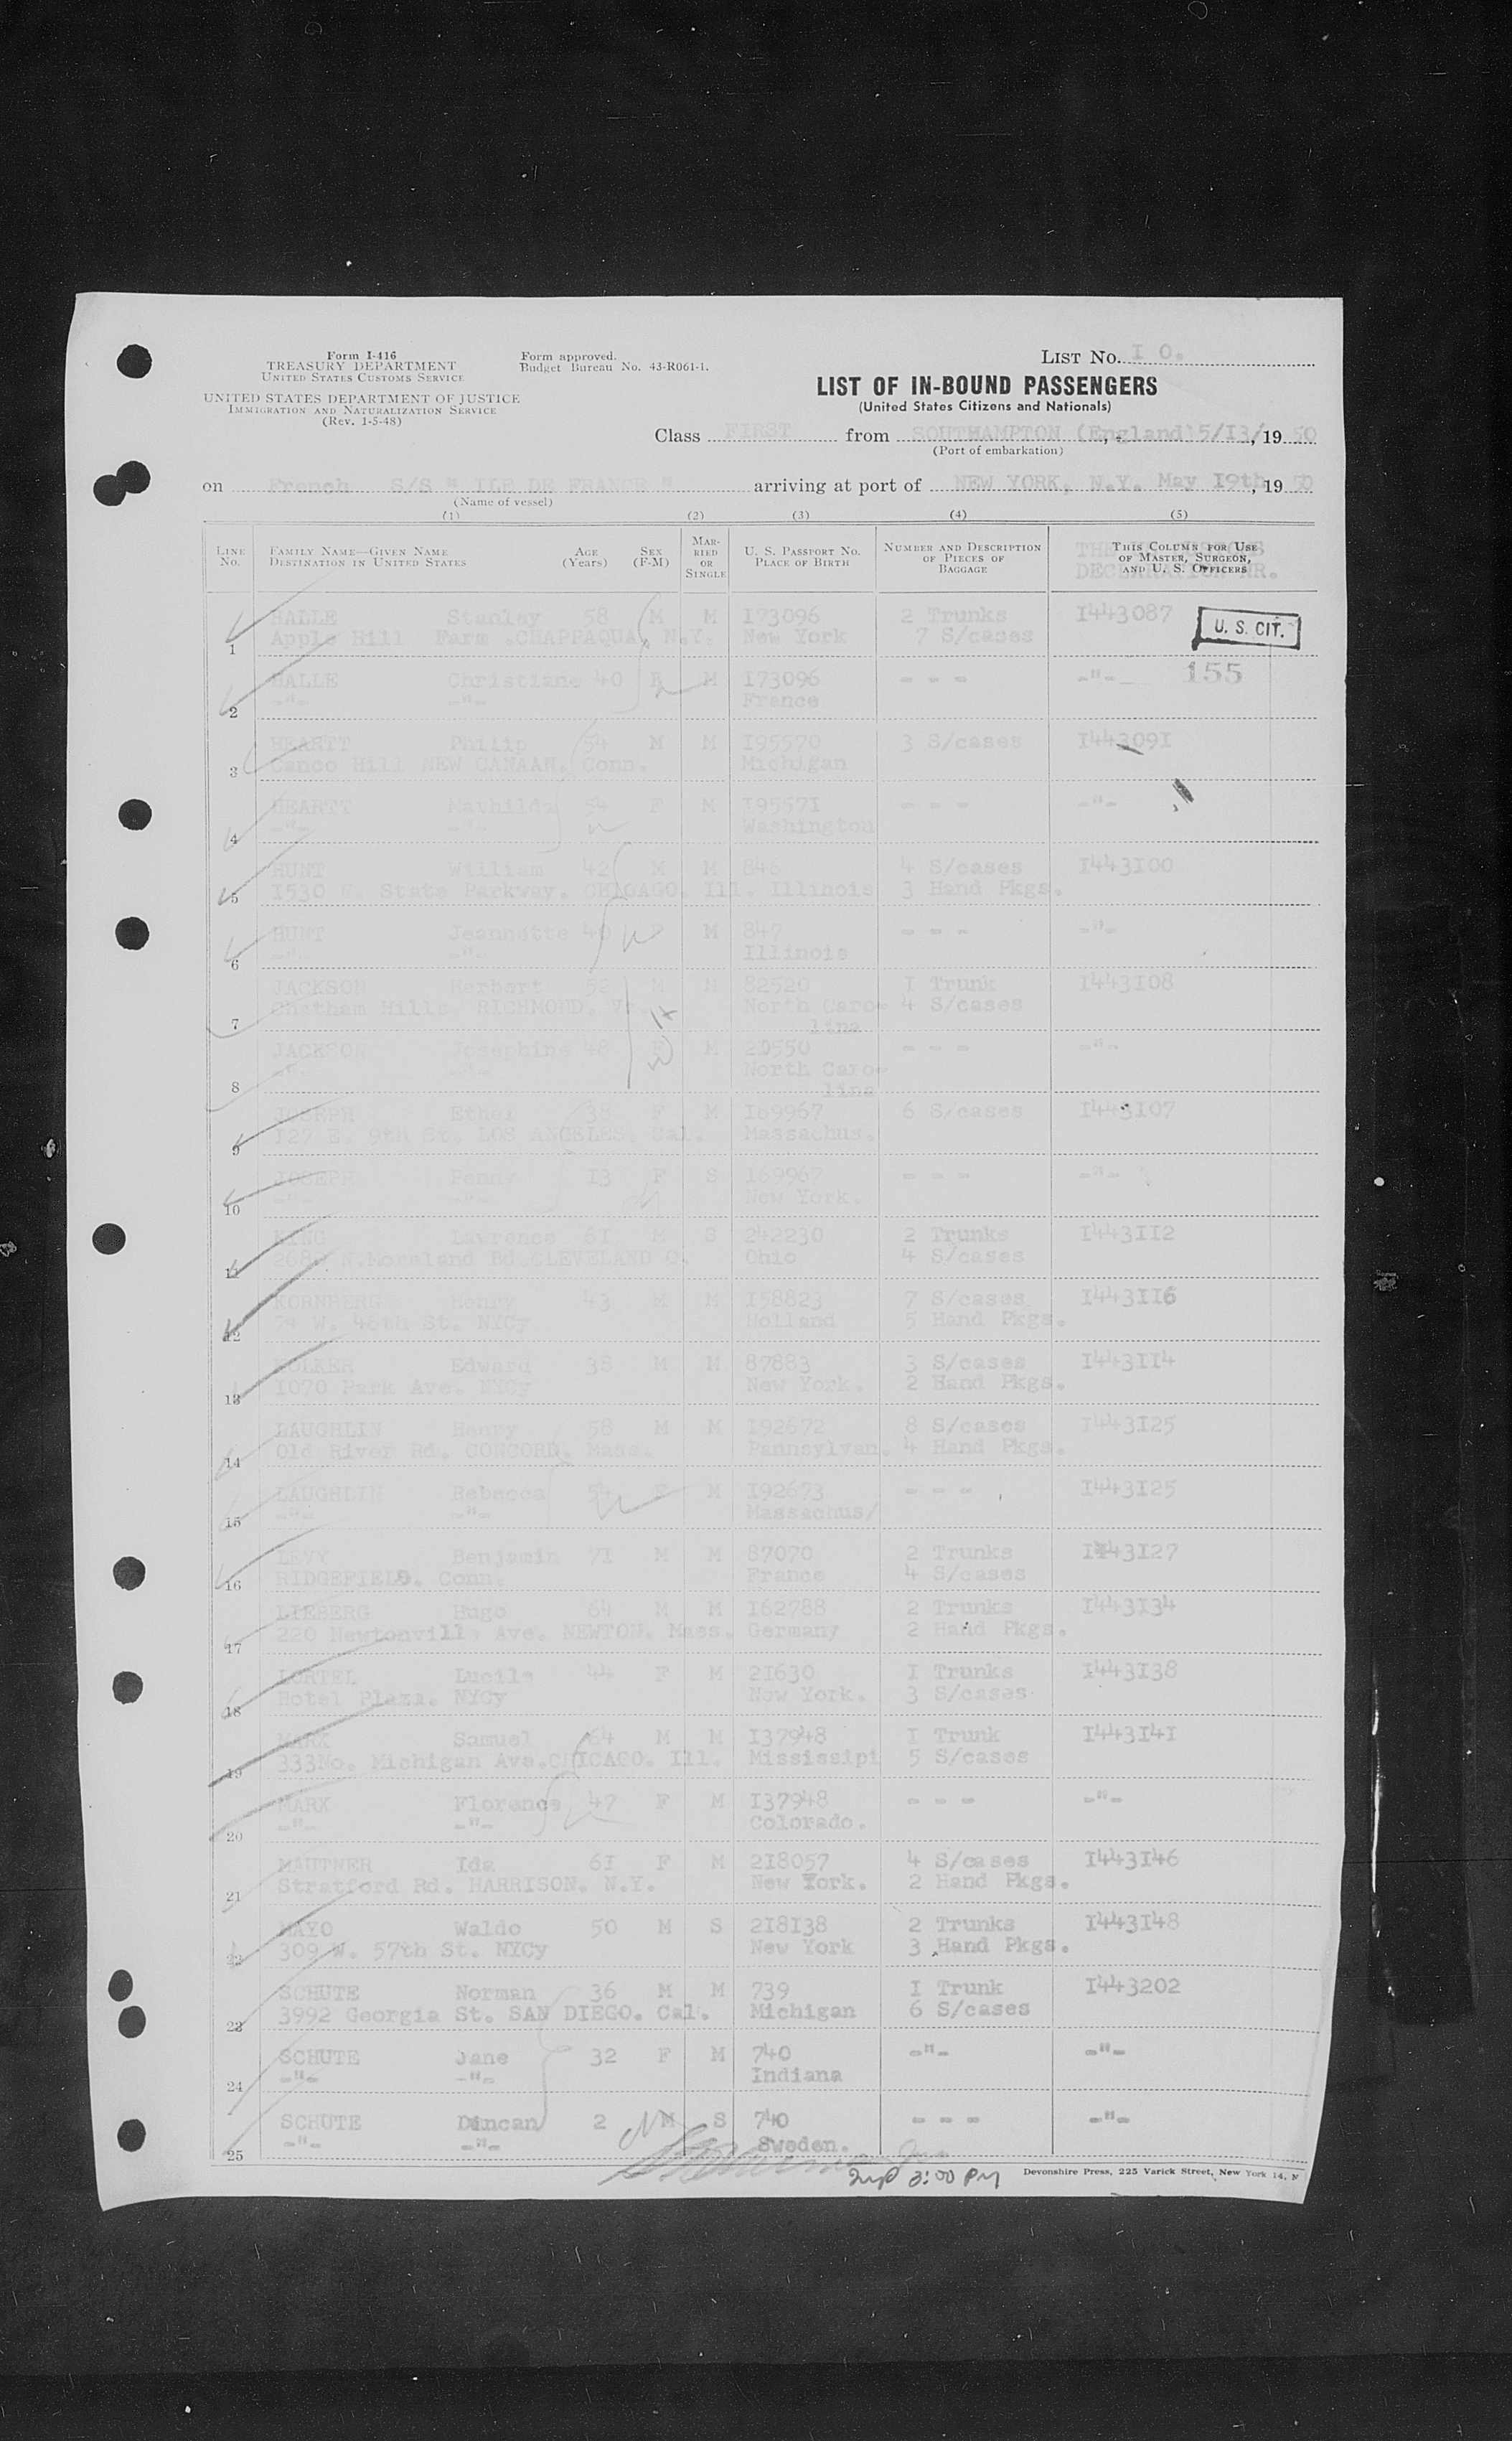 Form I-416
TREASURY DEPARTMENT
UNITED STATES CUSTOMS SERVICE
UNITED STATES DEPARTMENT OF JUSTICE
IMMIGRATION AND NATURALIZATION SERVICE
(Rev. 1-5-48)
Form approved.
Budget Bureau No. 43-R061-1.
LIST No. I O.
LIST OF IN-BOUND PASSENGERS
(United States Citizens and Nationals)
Class FIRST from SOUTHAMPTON (England) 5/I3/, 19 50
(Port of embarkation)
on French S/S " ILE DE FRANCE " arriving at port of NEW YORK, N.Y. May I9th, 19 50
(Name of vessel)
(1) (2) (3) (4) (5)
LINE No. FAMILY NAME—GIVEN NAME DESTINATION IN UNITED STATES AGE (Years) SEX (F-M) MARRIED OR SINGLE U. S. PASSPORT No. PLACE OF BIRTH NUMBER AND DESCRIPTION OF PIECES OF BAGGAGE THIS COLUMN FOR USE OF MASTER, SURGEON, AND U. S. OFFICERS
DECLARATION NR.
1 HALLE Stanley 58 M M I73096 2 Trunks I443087
Apple Hill Farm. CHAPPAQUA, N.Y. New York 7 S/cases
U. S. CIT.
2 HALLE Christiane 40 M I73096 - - - -"-
-"- -"- France
155
3 HEARTT Philip 54 M M I95570 3 S/cases I443091
Canoo Hill NEW CANAAN, Conn. Michigan
4 HEARTT Mathilda 54 F M I95571 - - - -"-
-"- -"- Washington
5 HUNT William 42 M M 846 4 S/cases I443I00
I530 N. State Parkway. CHICAGO. Ill. Illinois 3 Hand Pkgs.
6 HUNT Jeannette 40 F M 847 - - - -"-
-"- -"- Illinois
7 JACKSON Herbert 52 M M 82520 I Trunk I443I08
Chatham Hills. RICHMOND. Va. North Caro- 4 S/cases
lina
8 JACKSON Josephine 48 F M 20550 - - - -"-
-"- -"- North Caro-
lina
9 JOSEPH Ethel 38 F M I69967 6 S/cases I443I07
I27 E. 9th St. LOS ANGELES. Cal. Massachus.
10 JOSEPH Penny I3 F S I69967 - - - -"-
-"- -"- New York.
11 KING Lawrence 6I M S 242230 2 Trunks I443II2
N.Moreland Rd.CLEVELAND O. Ohio 4 S/cases
12 KORNBERG Henry 43 M M I58823 7 S/cases I443II6
74 W. 46th St. NYCy Holland 5 Hand Pkgs.
13 Edward 38 M M 87883 3 S/cases I443II4
I070 Park Ave. NYCy New York. 2 Hand Pkgs.
14 LAUGHLIN Henry 58 M M I92672 8 S/cases I443I25
Old River Rd. CONCORD. Mass. Pannsylvan. 4 Hand Pkgs.
15 LAUGHLIN Rebecca 54 F M I92673 - - - I443I25
-"- -"- Massachus/
16 LEVY Benjamin 7I M M 87070 2 Trunks I443I27
RIDGEFIELD. Conn. France 4 S/cases
17 LIEBERG Hugo 64 M M I62788 2 Trunks I443I34
220 Newtonville Ave. NEWTON. Mass. Germany 2 Hand Pkgs.
18 LORTEL Lucile 44 F M 2I630 I Trunks I443I38
Hotel Plaza. NYCy New York. 3 S/cases
19 MARX Samuel 64 M M I37948 I Trunk I443I4I
333No. Michigan Ave.CHICAGO. Ill. Mississipi 5 S/cases
20 MARX Florence 47 F M I37948 - - - -"-
-"- -"- Colorado.
21 MAUTNER Ida 6I F M 2I8057 4 S/cases I443I46
Stratford Rd. HARRISON. N.Y. New York. 2 Hand Pkgs.
22 MAYO Waldo 50 M S 2I8I38 2 Trunks I443I48
309 W. 57th St. NYCy New York 3 Hand Pkgs.
23 SCHUTE Norman 36 M M 739 I Trunk I443202
3992 Georgia St. SAN DIEGO. Cal. Michigan 6 S/cases
24 SCHUTE Jane 32 F M 740 -"- -"-
-"- -"- Indiana
25 SCHUTE Duncan 2 M S 740 - - - -"-
-"- -"- Sweden.
3:00 PM
Devonshire Press, 225 Varick Street, New York 14, N